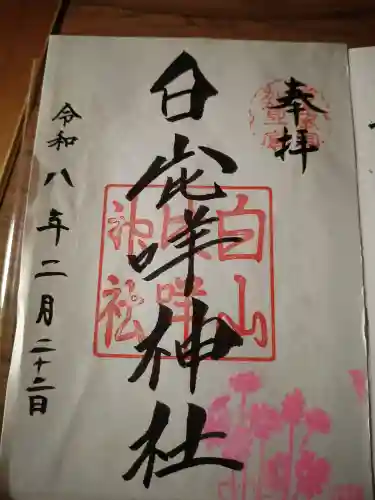 奉拝
白山比咩神社
白山
比咩
神社
令和八年二月二十二日